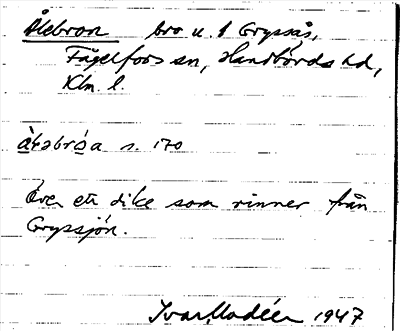 Ålebron bro u. f Gryssås,
Fågelfors sn, Handbörds hd,
Klm. l.
s. 170
Över ett dike som rinner från
Gryssjön.
Ivar Modéer 1947